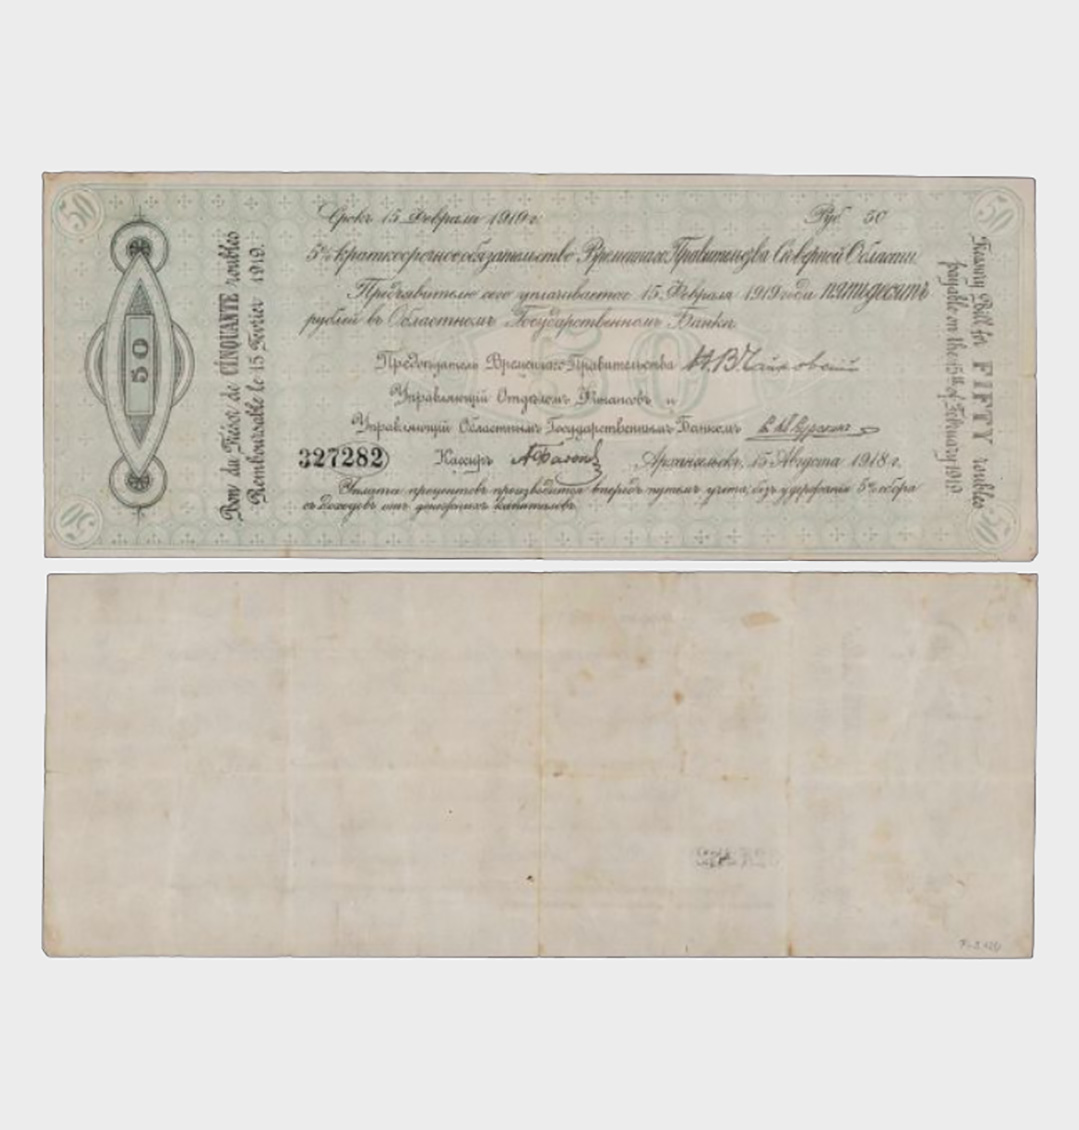 50
50
Срокъ 15 Февраля 1919 г.
Руб 50
5% краткосрочное обязательство Временнаго Правительства Сѣверной Области.
Предъявителю сего уплачивается 15 Февраля 1919 года пятьдесятъ
рублей въ Областномъ Государственномъ Банкѣ.
50
Предсѣдатель Временнаго Правительства Н. В. Чайковскій
Управляющій Отдѣломъ Финансовъ и
Управляющій Областнымъ Государственнымъ Банкомъ
327282
Кассиръ
Архангельскъ, 15 Августа 1918 г.
Уплата процентовъ производится впередъ путемъ учета, безъ удержанія 5% сбора
съ доходовъ отъ денежныхъ капиталовъ.
50
Bon du Trésor de CINQUANTE roubles
Remboursable le 15 Février 1919.
Treasury Bill for FIFTY roubles
payable on the 15th of February 1919.
50
50